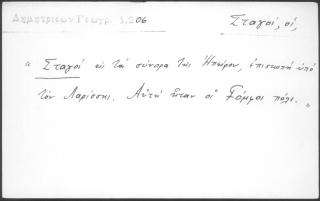 Δημητριέων Γεωγρ. 1.206
Σταγοί, οἱ,
« Σταγοί εἰς τὰ σύνορα τῆς Ἠπείρου, ἐπισκοπὴ ὑπὸ
τὸν Λαρίσσης. Αὐτὴ ἦταν οἱ Γόμφοι πόλι. »